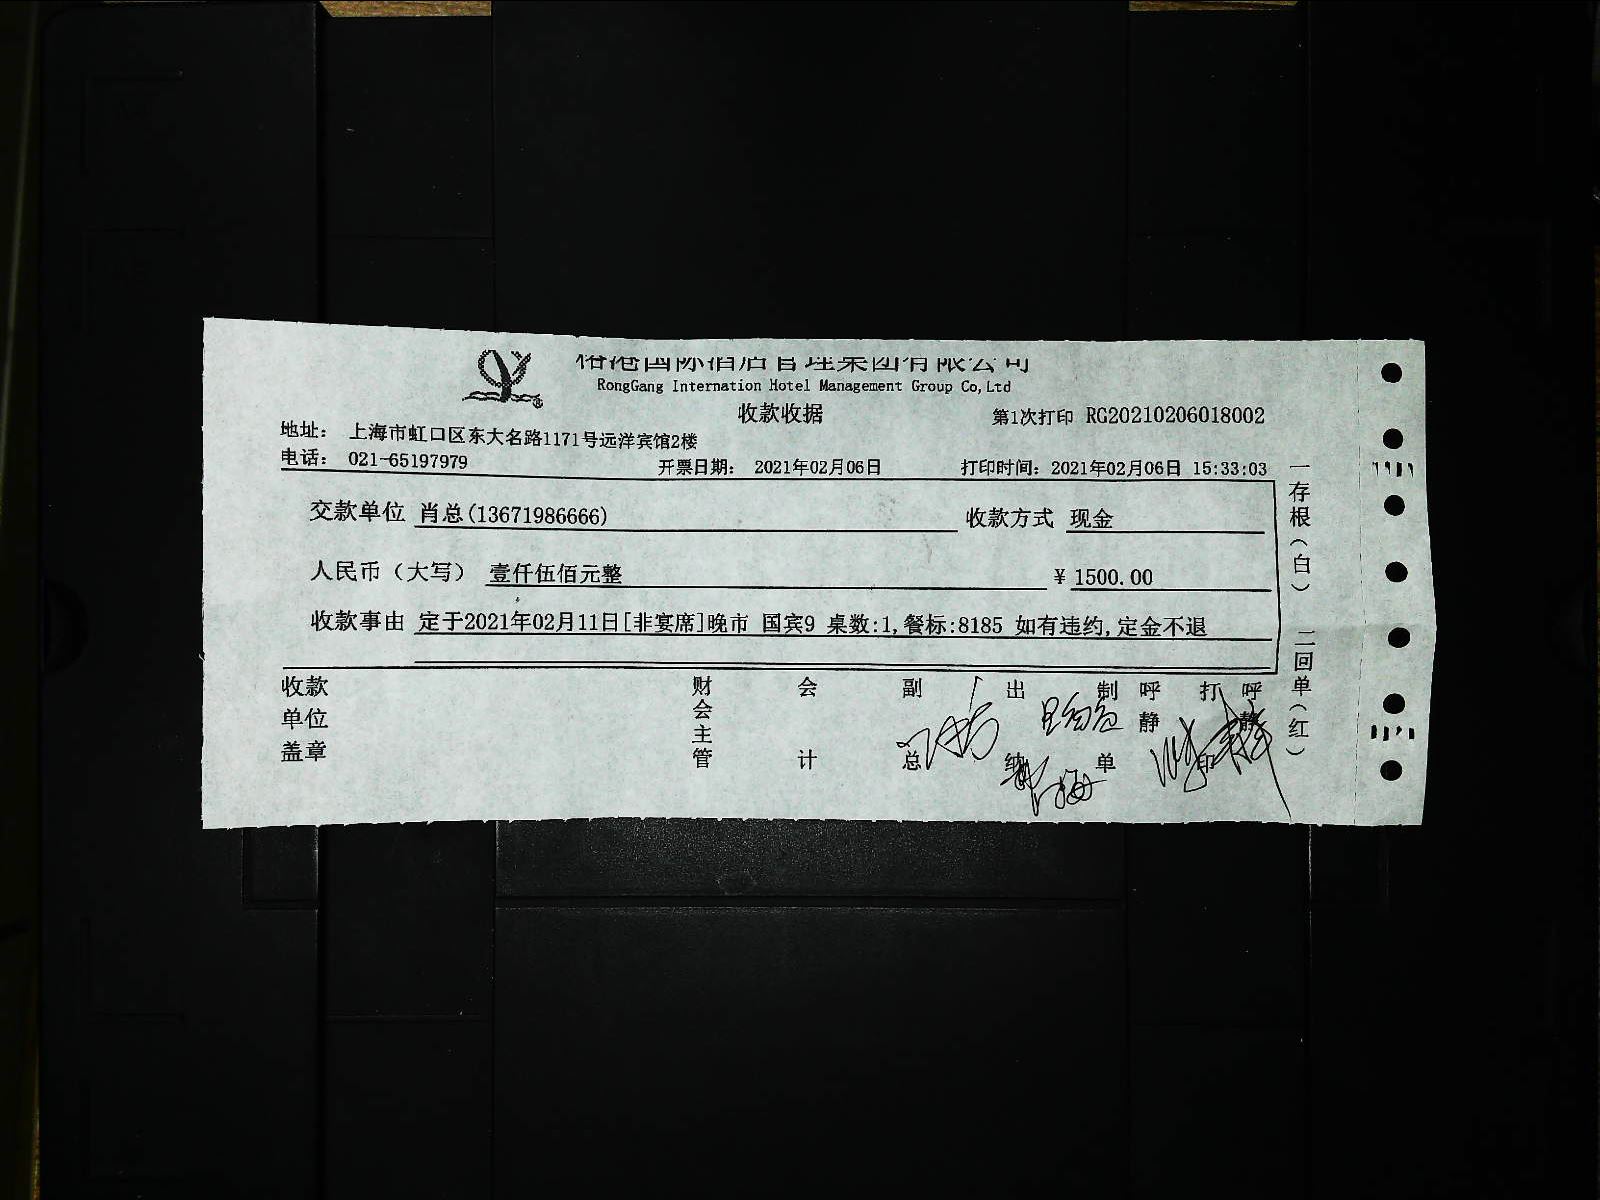 国际酒店管理集团有限公司
RongGang Internation Hotel Management Group Co,Ltd
收款收据
第1次打印 RG20210206018002
地址: 上海市虹口区东大名路1171号远洋宾馆2楼
电话: 021-65197979
开票日期: 2021年02月06日
打印时间: 2021年02月06日 15:33:03
交款单位 肖总(13671986666)
收款方式 现金
人民币（大写） 壹仟伍佰元整
¥ 1500.00
收款事由 定于2021年02月11日[非宴席]晚市 国宾9 桌数:1,餐标:8185 如有违约,定金不退
收款单位盖章
财会主管
会计
副总
出纳
制单
呼静
打印
呼静
一存根（白） 二回单（红）